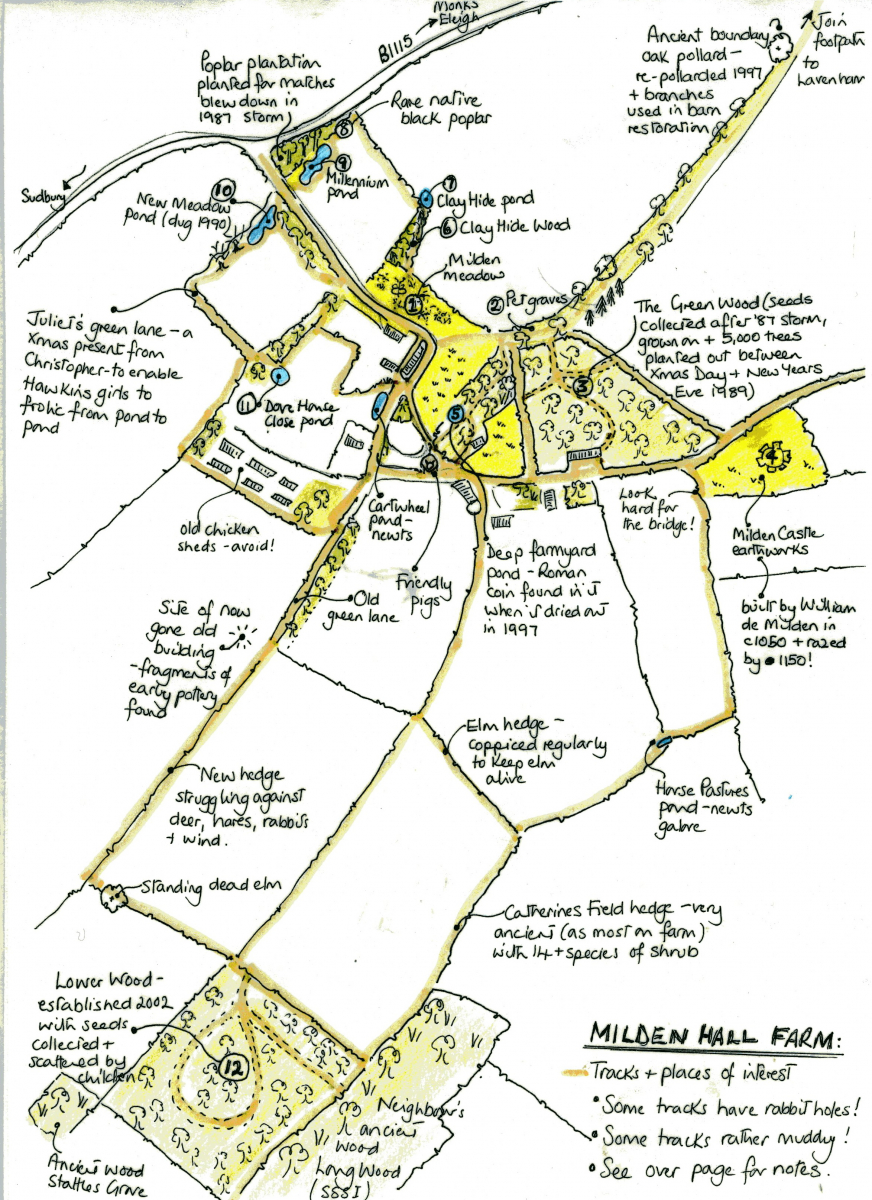 Monks
Eleigh
B1115
Join
footpath
to
Lavenham
Ancient boundary
oak pollard –
re-pollarded 1997
+ branches
used in barn
restoration
Poplar plantation
planted for matches
blew down in
1987 storm
Rare native
black poplar
8
9
Millennium
pond
Sudbury
10
New Meadow
pond (dug 1990)
7
Clay Hide pond
6 Clay Hide Wood
Milden
meadow
1
2 Pet graves
The Green Wood (seeds
collected after '87 storm,
grown on + 5,000 trees
planted out between
Xmas Day + New Years
Eve 1989)
3
Juliet's green lane – a
xmas present from
Christopher – to enable
Hawkins girls to
frolic from pond to
pond
11 Dove House
Close pond
5
4
old chicken
sheds – avoid!
Cartwheel
pond –
newts
Look
hard for
the bridge!
Milden Castle
earthworks
Friendly
pigs
Deep farmyard
pond – Roman
coin found in it
when it dried out
in 1997
built by William
de Milden in
c1050 + razed
by 1150!
Old
green lane
Site of now
gone old
building
– fragments of
early pottery
found
Elm hedge –
coppiced regularly
to keep elm
alive
New hedge
struggling against
deer, hares, rabbits
+ wind.
Horse Pastures
pond – newts
galore
Standing dead elm
Catherines Field hedge – very
ancient (as most on farm)
with 14 + species of shrub
Lower Wood –
established 2002
with seeds
collected +
scattered by
children
12
Neighbour's
ancient
wood
Long Wood
(SSSI)
Ancient Wood
Stattles Grove
MILDEN HALL FARM:
Tracks + places of interest
• Some tracks have rabbit holes!
• Some tracks rather muddy!
• See over page for notes.